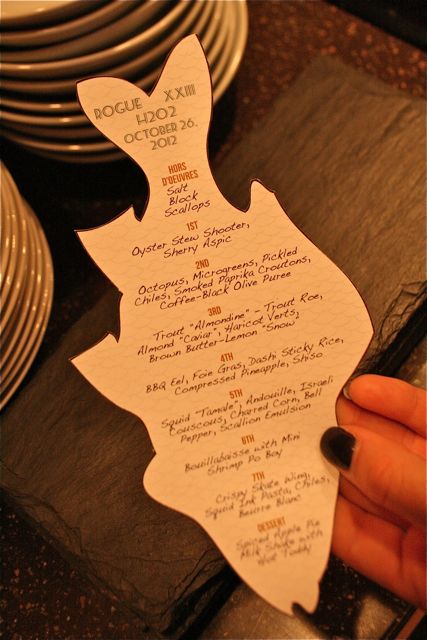 ROGUE XXIII
H2O2
OCTOBER 26,
2012
HORS
D'OEUVRES
Salt
Block
Scallops
1ST
Oyster Stew Shooter,
Sherry Aspic
2ND
Octopus, Microgreens, Pickled
Chiles, Smoked Paprika Croutons,
Coffee-Black Olive Puree
3RD
Trout "Almondine" - Trout Roe,
Almond "Caviar", Haricot Verts,
Brown Butter-Lemon "Snow"
4TH
BBQ Eel, Foie Gras, Dashi Sticky Rice,
Compressed Pineapple, Shiso
5TH
Squid "Tamale", Andouille, Israeli
Couscous, Charred Corn, Bell
Pepper, Scallion Emulsion
6TH
Bouillabaisse with Mini
Shrimp Po Boy
7TH
Crispy Skate Wing,
Squid Ink Pasta, Chiles,
Beurre Blanc
DESSERT
Spiced Apple Pie
Milk Shake with
Hot Toddy